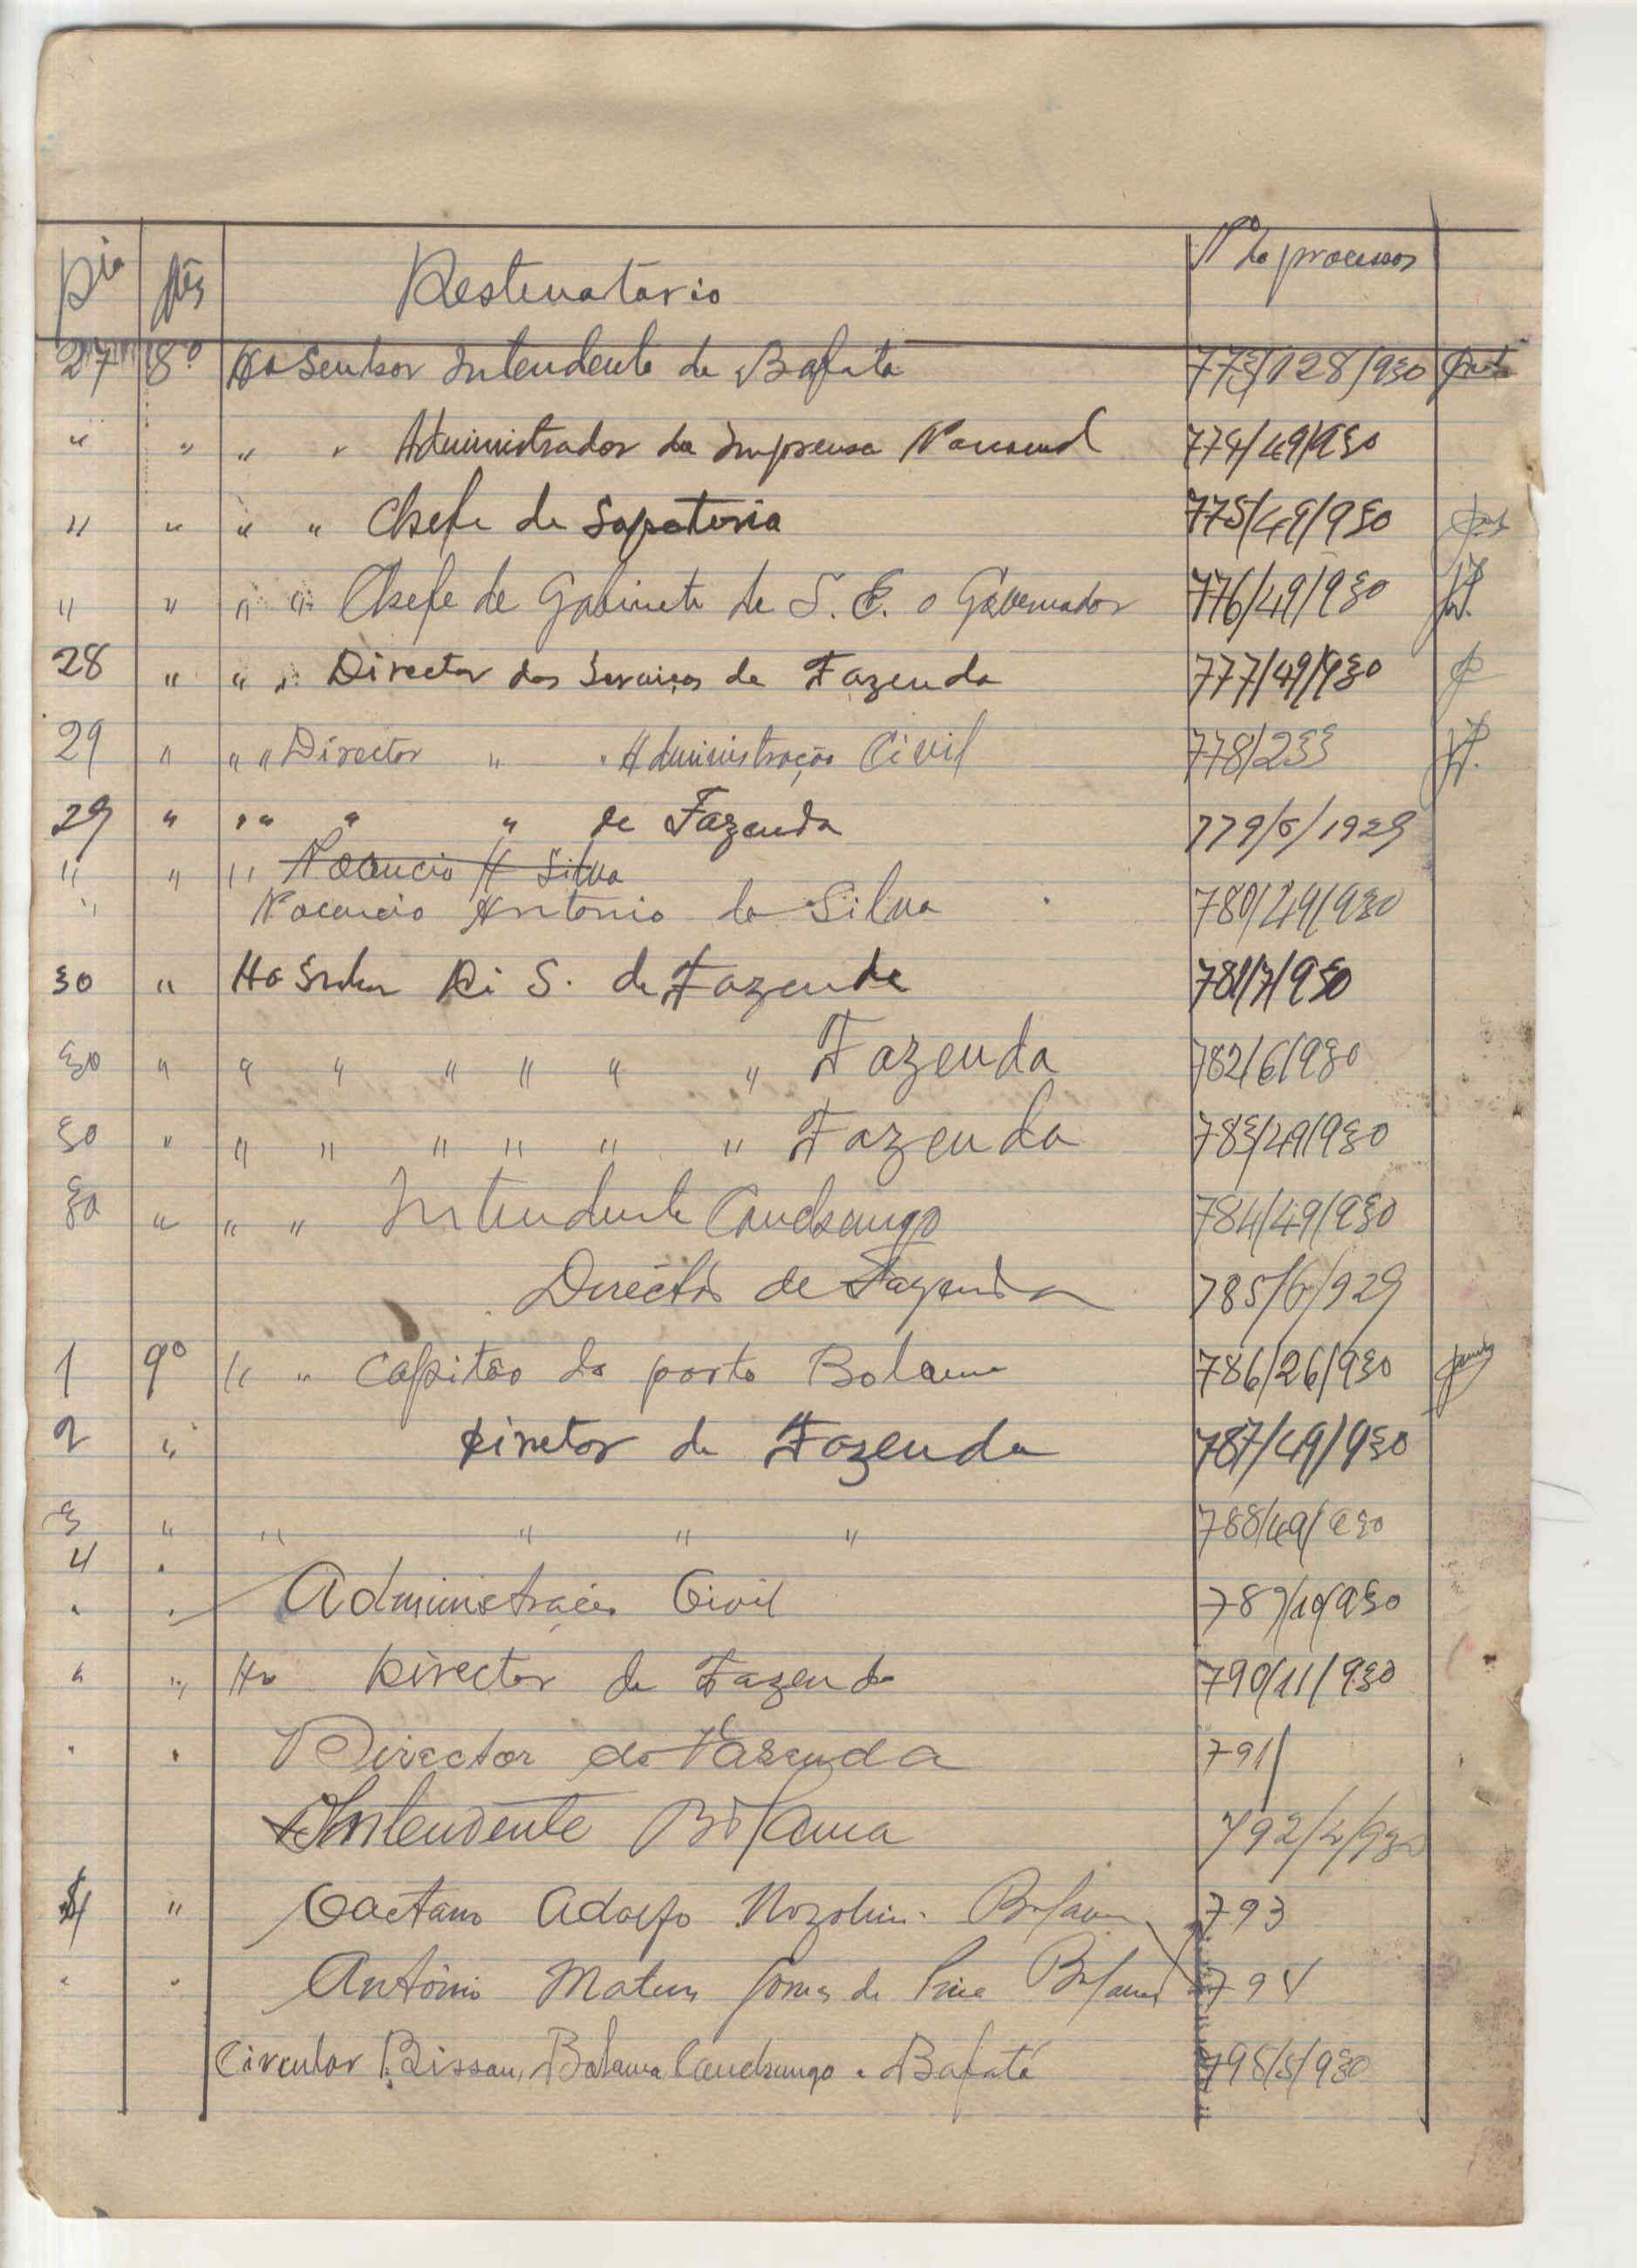 Dia Mês Destinatário Nº do processo
27 8º Ao Senhor Intendente de Bafata 773/128/930
" " " " Administrador da Imprensa Nacional 774/49/930
" " " " Chefe da Sapataria 775/49/930
" " " " Chefe de Gabinete de S. E. o Governador 776/49/930
28 " " " Director dos Serviços de Fazenda 777/49/930
29 " " " Director " " Administração Civil 778/233
29 " " " " " de Fazenda 779/6/1929
" " " Silva
" Antonio da Silva 780/49/930
30 " Ao Di S. de Fazenda 781/7/930
30 " " " " " " " Fazenda 782/6/930
30 " " " " " " " Fazenda 783/49/930
30 " " " Intendente Canchungo 784/49/930
Director de Fazenda 785/6/929
1 9º " " Capitão do porto Bolama 786/26/930
2 " Diretor da Fazenda 787/49/930
3 " " " " " 788/49/930
4 "
" " Administração Civil 789/10/930
" " Ao Director da Fazenda 790/11/930
" " Director de Fazenda 791/
Intendente Bolama 792/4/930
" Caetano Adolfo Nozolini Bolama 793
" " António Mateus Gomes de Pina Bolama 794
Circular Bissau, Bolama Canchungo e Bafatá 795/5/930